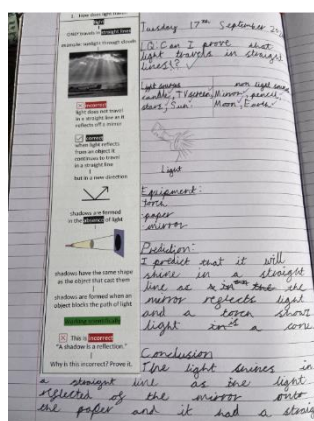 1. How does light travel?
light
ONLY travels in straight lines
example: sunlight through clouds
incorrect
light does not travel
in a straight line as it
reflects off a mirror
correct
when light reflects
from an object it
continues to travel
in a straight line
but in a new direction
shadows are formed
in the absence of light
shadows have the same shape
as the object that cast them
shadows are formed when an
object blocks the path of light
This is incorrect
"A shadow is a reflection."
Why is this incorrect? Prove it.
Tuesday 17th September
LQ: Can I prove that
light travels in straight
lines?
Light sources
candle, TV screen,
stars, Sun
non light
Mirror, pencil,
Moon, Earth
Light
Equipment:
torch
paper
mirror
Prediction:
I predict that it will
shine in a straight
line as the
mirror reflects light
and a torch shows
light in a cone
Conclusion
The light shines in
a straight line as the light
reflected of the mirror onto
the paper and it had a straig